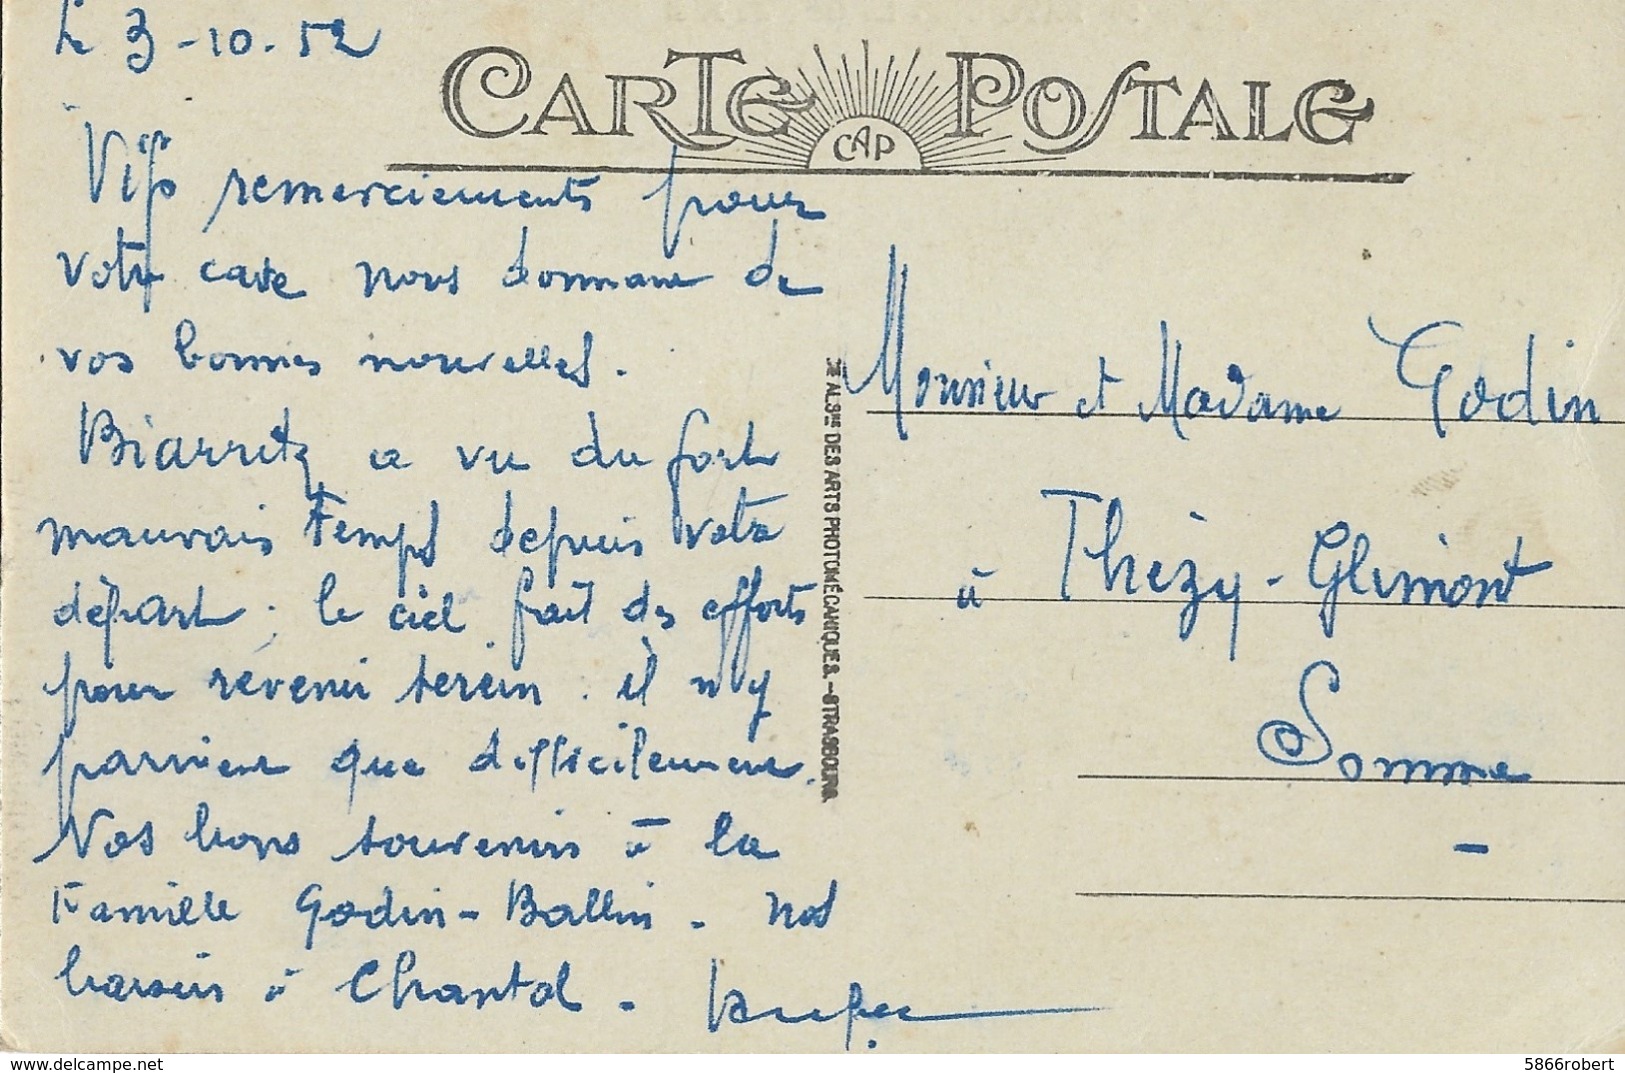 Le 3-10-52
CARTE POSTALE
CAP
Vifs remerciements pour
votre carte nous donnant de
vos bonnes nouvelles.
Biarritz a vu du fort
mauvais temps depuis votre
départ ; le ciel fait des efforts
pour revenir serein : il n'y
parvient que difficilement.
Nos bons souvenirs à la
Famille Godin-Ballin - nos
baisers à Chantal.
Cie ALSNE DES ARTS PHOTOMÉCANIQUES. - STRASBOURG.
Monsieur et Madame Godin
à Thézy-Glimont
Somme
delcampe.net
5866robert